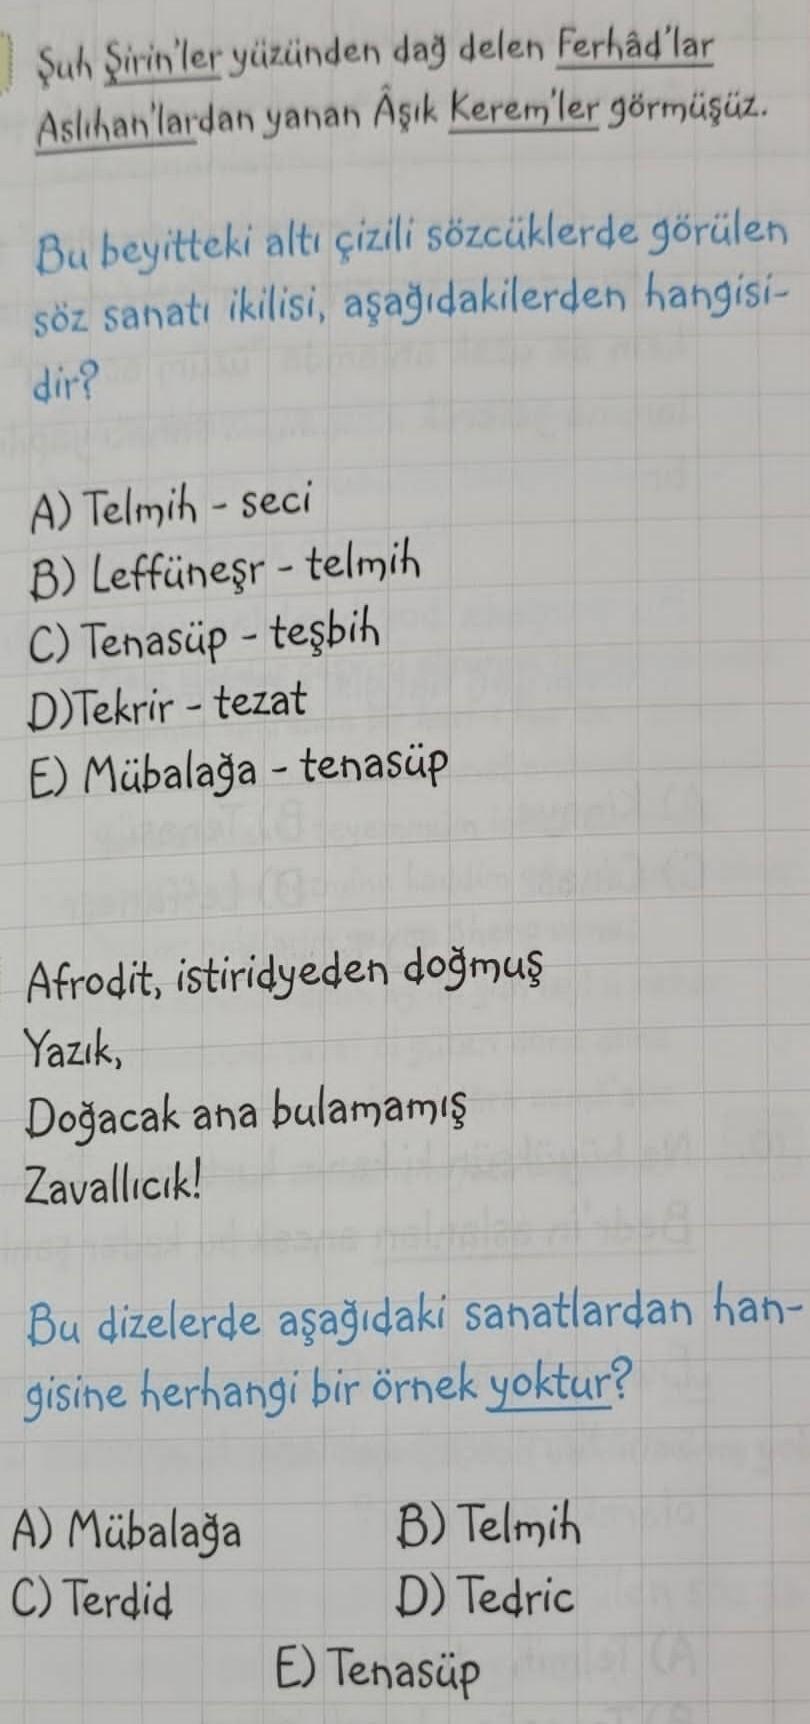 Şuh Şirin'ler yüzünden dağ delen Ferhâd'lar
Aslıhan'lardan yanan Âşık Kerem'ler görmüşüz.
Bu beyitteki altı çizili sözcüklerde görülen
söz sanatı ikilisi, aşağıdakilerden hangisi-
dir?
A) Telmih - seci
B) Leffüneşr - telmih
C) Tenasüp - teşbih
D) Tekrir - tezat
E) Mübalağa - tenasüp
Afrodit, istiridyeden doğmuş
Yazık,
Doğacak ana bulamamış
Zavallıcık!
Bu dizelerde aşağıdaki sanatlardan han-
gisine herhangi bir örnek yoktur?
A) Mübalağa B) Telmih
C) Terdid D) Tedric
E) Tenasüp